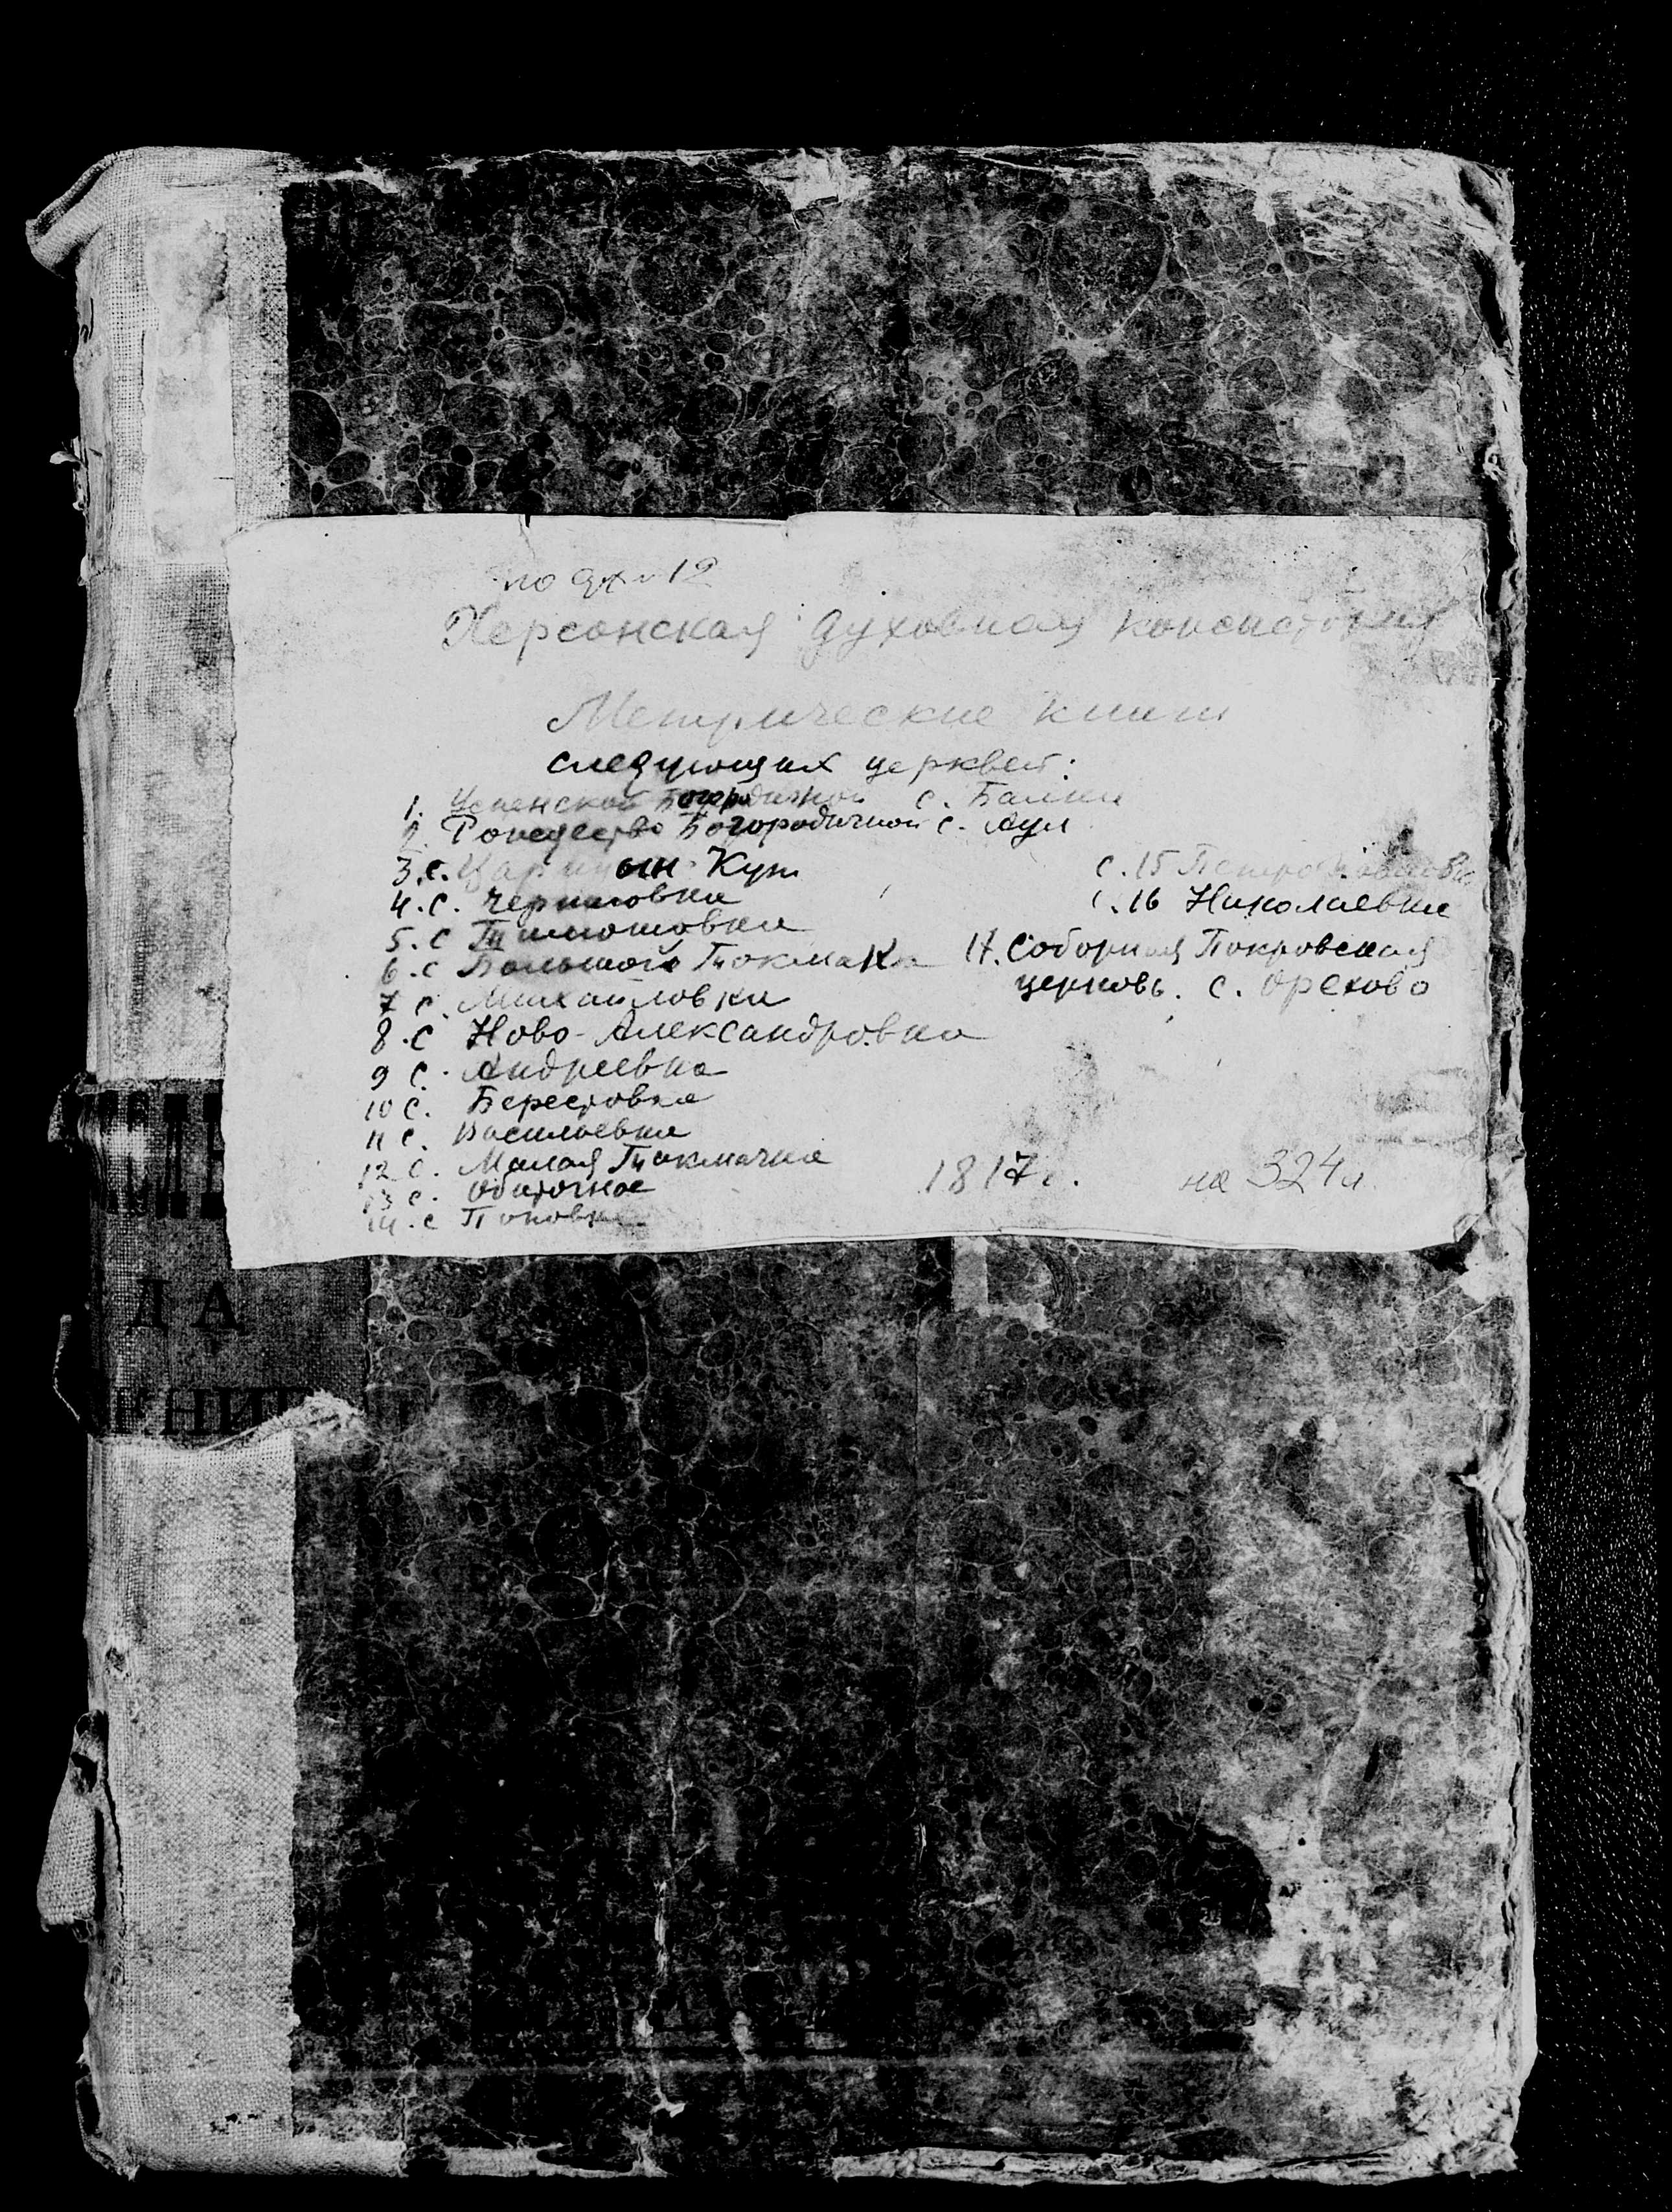 Херсонская духовная консистория
Метрические книги
следующих церквей:
1. Успенской Богородичной с. Балки
2. Рождество Богородичной с. Аул
3. с. Царицын Кут
4. с. Черниговка
5. с Тимошовка
6. с Большого Токмака
7 с. Михайловки
8. с Ново-Александровка
9 с. Андреевка
10 с. Берестовка
11 с. Васильевка
12 с. Малая Токмачка
13 с. Обиточное
14. с Поповка
с. 15 Петропавловка
с. 16 Николаевка
17. Соборная Покровская
церковь. с. Орехово
1817 г. на 324 л
ДА